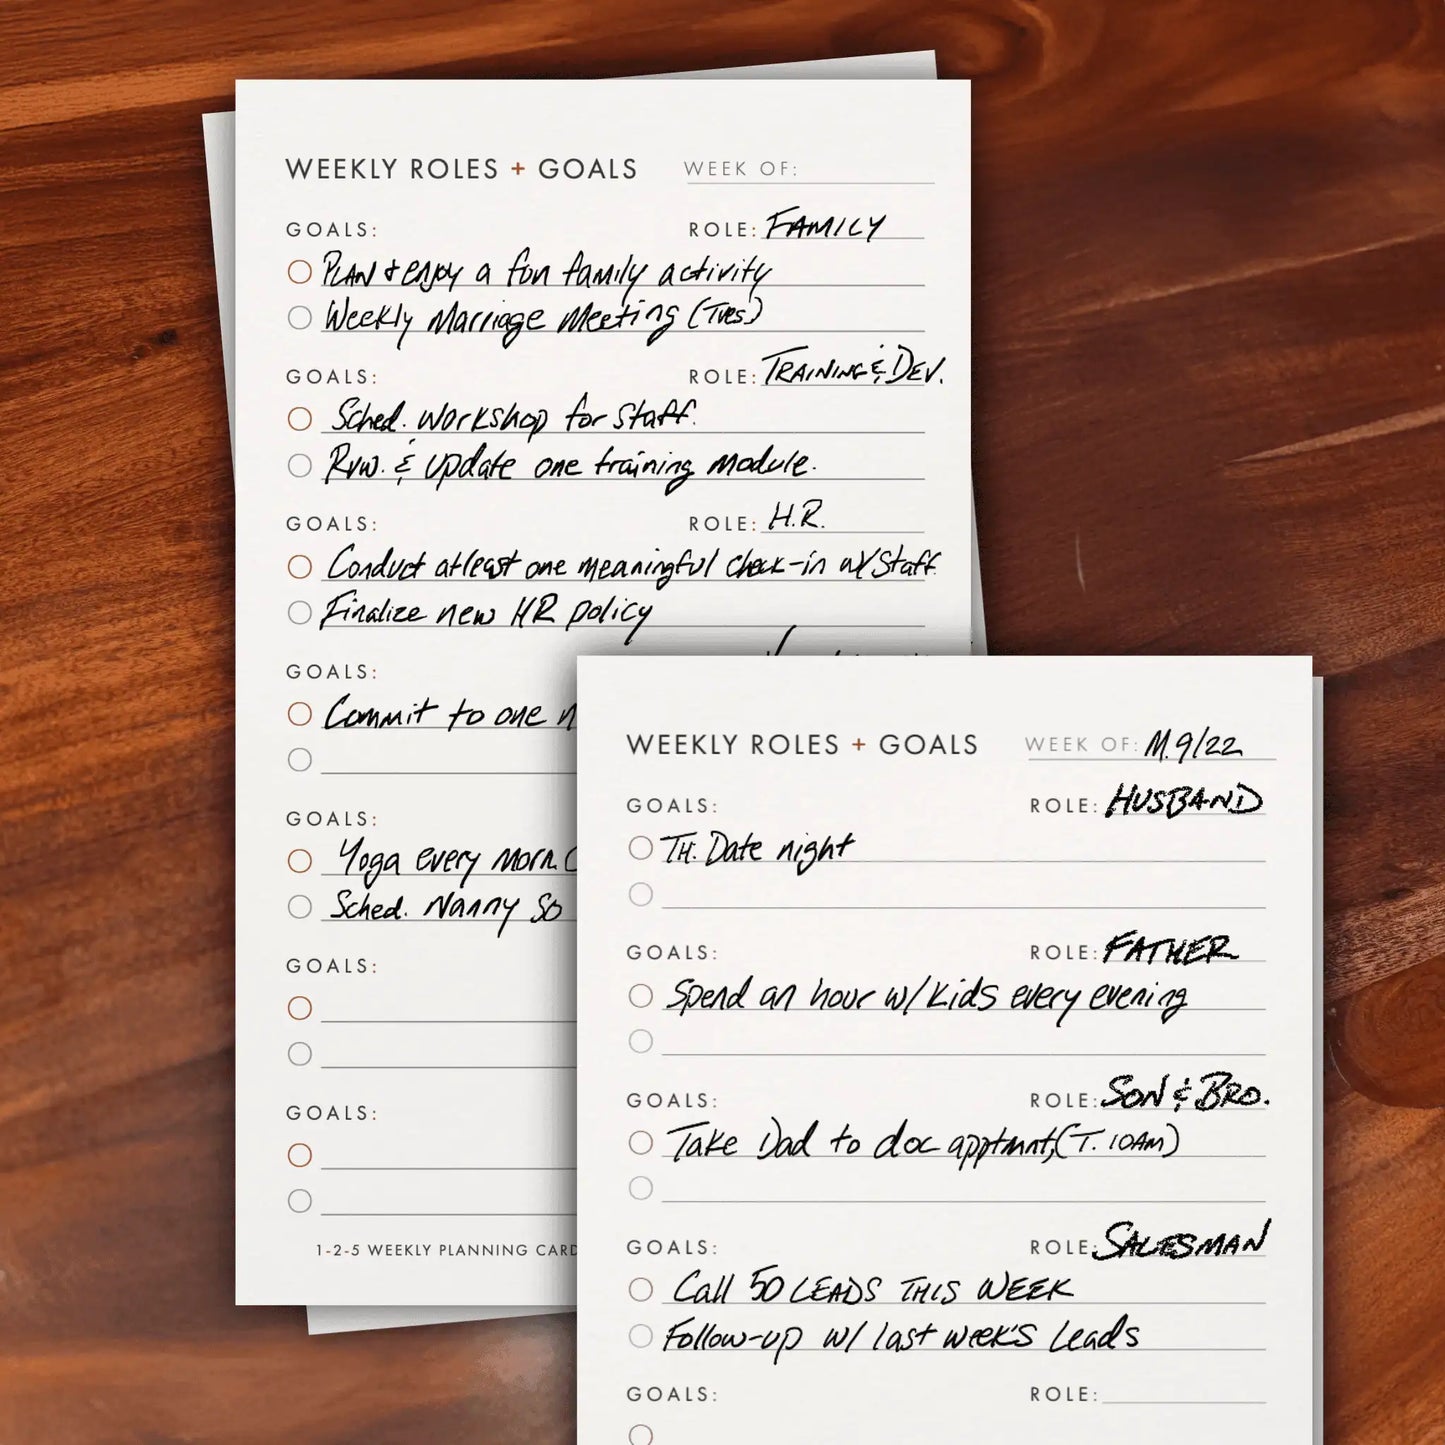 WEEKLY ROLES + GOALS WEEK OF:
GOALS: ROLE: FAMILY
PLAN & enjoy a fun family activity
Weekly Marriage Meeting (Tues)
GOALS: ROLE: TRAINING & DEV.
Sched. workshop for staff.
Rvw. & update one training module.
GOALS: ROLE: H.R.
Conduct atleast one meaningful check-in w/ Staff
Finalize new HR policy
GOALS:
Commit to one
GOALS:
Yoga every morn.
Sched. Nanny so
GOALS:
GOALS:
1-2-5 WEEKLY PLANNING CARD
WEEKLY ROLES + GOALS WEEK OF: M. 9/22
GOALS: ROLE: HUSBAND
TH. Date night
GOALS: ROLE: FATHER
Spend an hour w/ kids every evening
GOALS: ROLE: SON & BRO.
Take Dad to doc apptmnt, (T. 10AM)
GOALS: ROLE: SALESMAN
Call 50 LEADS THIS WEEK
Follow-up w/ last week's leads
GOALS: ROLE: